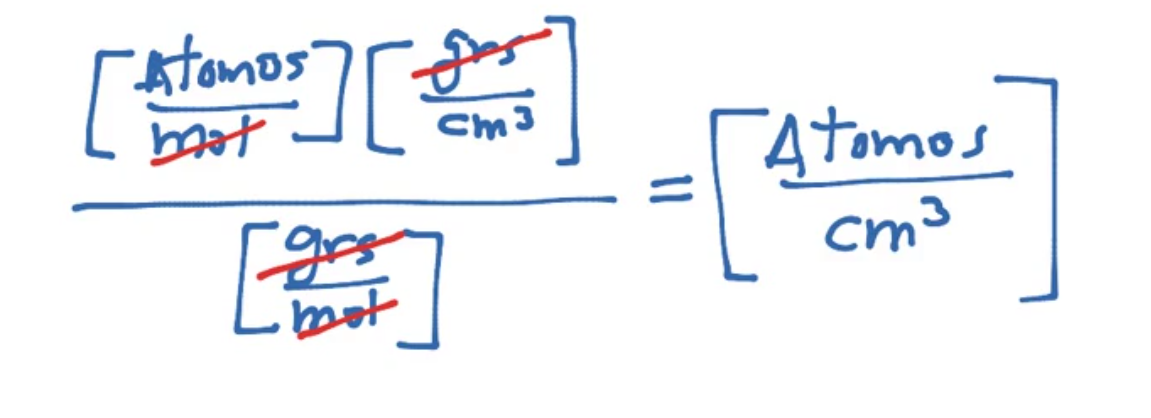 [Atomos/mol] [grs/cm³]
[grs/mol]
= [Atomos/cm³]